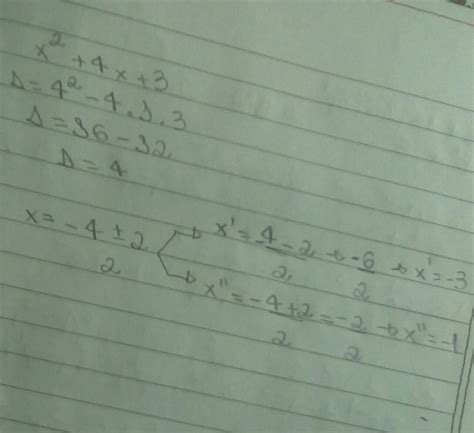 x² + 4x + 3
Δ = 4² - 4.1.3
Δ = 16 - 12
Δ = 4
x = -4 ± 2 / 2
x' = 4 - 2 / 2 → -6 / 2 → x' = -3
x" = -4 + 2 / 2 = -2 / 2 → x" = -1